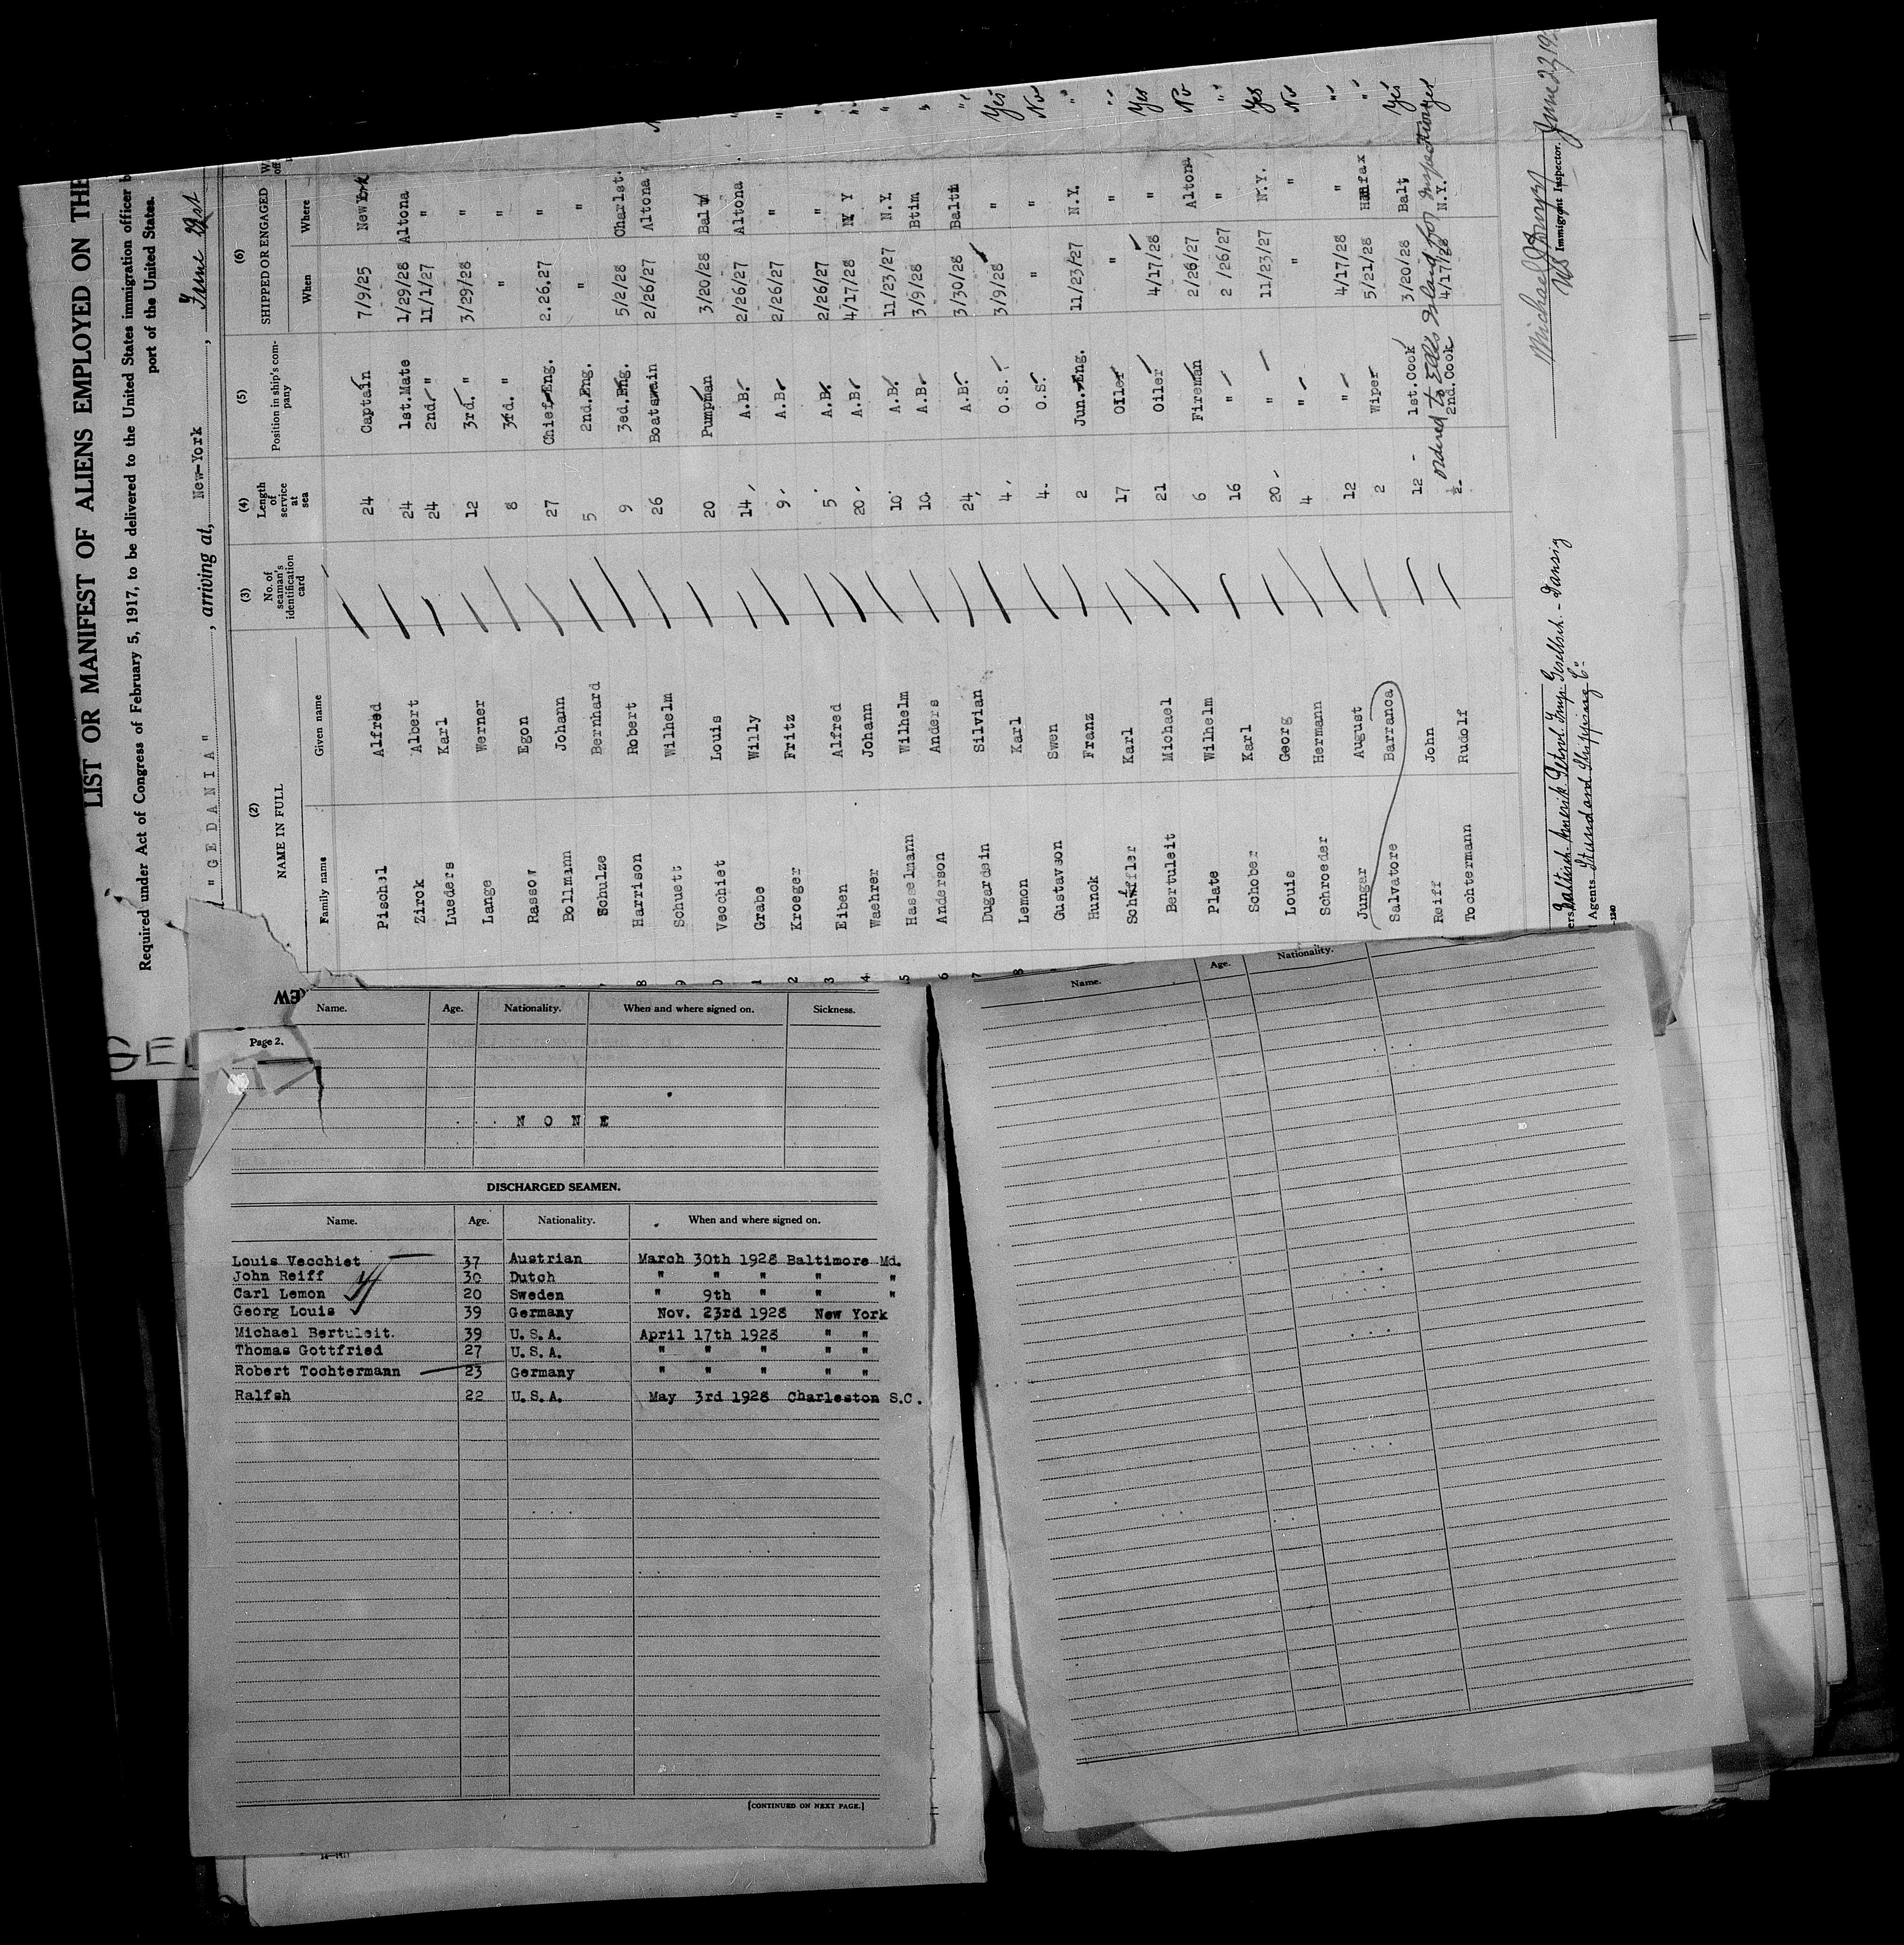 LIST OR MANIFEST OF ALIENS EMPLOYED ON THE
Required under Act of Congress of February 5, 1917, to be delivered to the United States immigration officer b
port of the United States.
"GEDANIA", arriving at, New-York, June 21st
(2) (3) (4) (5) (6)
NAME IN FULL No. of seaman's identification card Length of service at sea Position in ship's company SHIPPED OR ENGAGED
Family name Given name When Where
Pischel Alfred 24 Captain 7/9/25 New York
Zirck Albert 24 1st.Mate 1/29/28 Altona
Lueders Karl 24 2nd. " 11/1/27 "
Lange Werner 12 3rd. " 3/29/28 "
Rassow Egon 8 3rd. " " "
Bollmann Johann 27 Chief.Eng. 2.26.27 "
Schulze Bernhard 5 2nd.Eng. " "
Harrison Robert 9 3ed.Eng. 5/2/28 Charlst.
Schuett Wilhelm 26 Boatswain 2/26/27 Altona
Vecchiet Louis 20 Pumpman 3/20/28 Balt
Grabe Willy 14 A.B. 2/26/27 Altona
Kroeger Fritz 9 A.B. 2/26/27 "
Eiben Alfred 5 A.B. 2/26/27 "
Waehrer Johann 20 A.B. 4/17/28 N Y
Hasselmann Wilhelm 10 A.B. 11/23/27 N.Y.
Anderson Anders 10 A.B. 3/9/28 Btim
Dugardein Silvian 24 A.B. 3/30/28 Balti "
Lemon Karl 4 O.S. 3/9/28 " Yes
Gustavson Swen 4 O.S. " " No
Hunck Franz 2 Jun.Eng. 11/23/27 N.Y. "
Scheffler Karl 17 Oiler " " "
Bertuleit Michael 21 Oiler 4/17/28 " Yes
Plate Wilhelm 6 Fireman 2/26/27 Altona No
Schober Karl 16 " 2/26/27 " "
Louis Georg 20 " 11/23/27 N.Y. Yes
Schroeder Hermann 4 " " " No
Jungar August 12 " 4/17/28 " "
Salvatore Barranca 2 Wiper 5/21/28 "
Reiff John 12 1st.Cook 3/20/28 Balt Yes
ordered to Ellis Island for inspection
Tochtermann Rudolf 2 2nd.Cook 4/17/28 N.Y. yes
US Immigrant Inspector. June 23 19
Baltisch Amerik. Petrol. Imp. Gesellsch. - Danzig
Agents Standard Shipping Co.
Page 2.
Name. Age. Nationality. When and where signed on. Sickness.
NONE
DISCHARGED SEAMEN.
Name. Age. Nationality. When and where signed on.
Louis Vecchiet 37 Austrian March 30th 1928 Baltimore Md.
John Reiff 30 Dutch " " " " "
Carl Lemon 20 Sweden " 9th " " "
Georg Louis 39 Germany Nov. 23rd 1928 New York
Michael Bertuleit. 39 U.S.A. April 17th 1928 " "
Thomas Gottfried 27 U.S.A. " " " " "
Robert Tochtermann 23 Germany " " " " "
Ralfsh 22 U.S.A. May 3rd 1928 Charleston S.C.
[CONTINUED ON NEXT PAGE.]
Name. Age. Nationality.